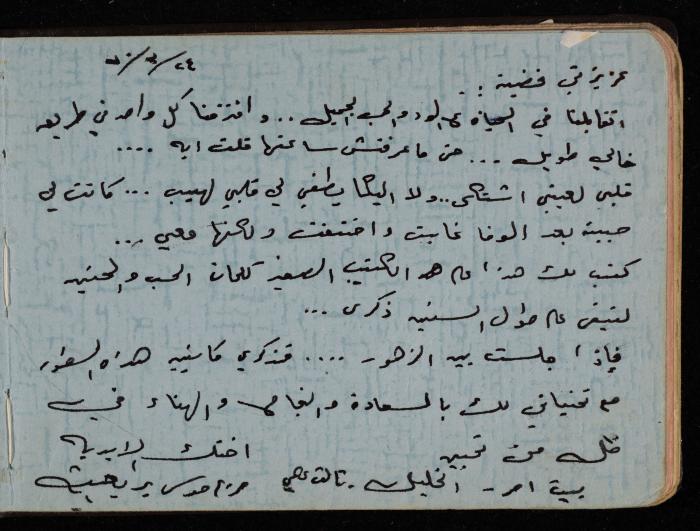 ٢٤/٣/٧٠
عزيزتي فضية :
اتقابلنا في الحياة بالود والحب الجميل .. وافترقنا كل واحد في طريقه
خالي طويل ... حتى ما عرفتش ساعتها قلت ايه ....
قلبي لعيني اشتكى .. ولا البكا يطفي لي قلبي لهيب ... كانت لي
حبيبة بعد الوفا غابت واختفت ولكنها معي ...
كتب لك هذا الكتيب الصغير كلمات الحب والحنين
لتبقى على طول السنين ذكرى ...
فإذا جلست بين الزهور .... فتذكري كاتبة هذه السطور
مع تمنياتي لك بالسعادة والهناء في
ظل من تحبين
اختك الابدية
بيت امر - الخليل